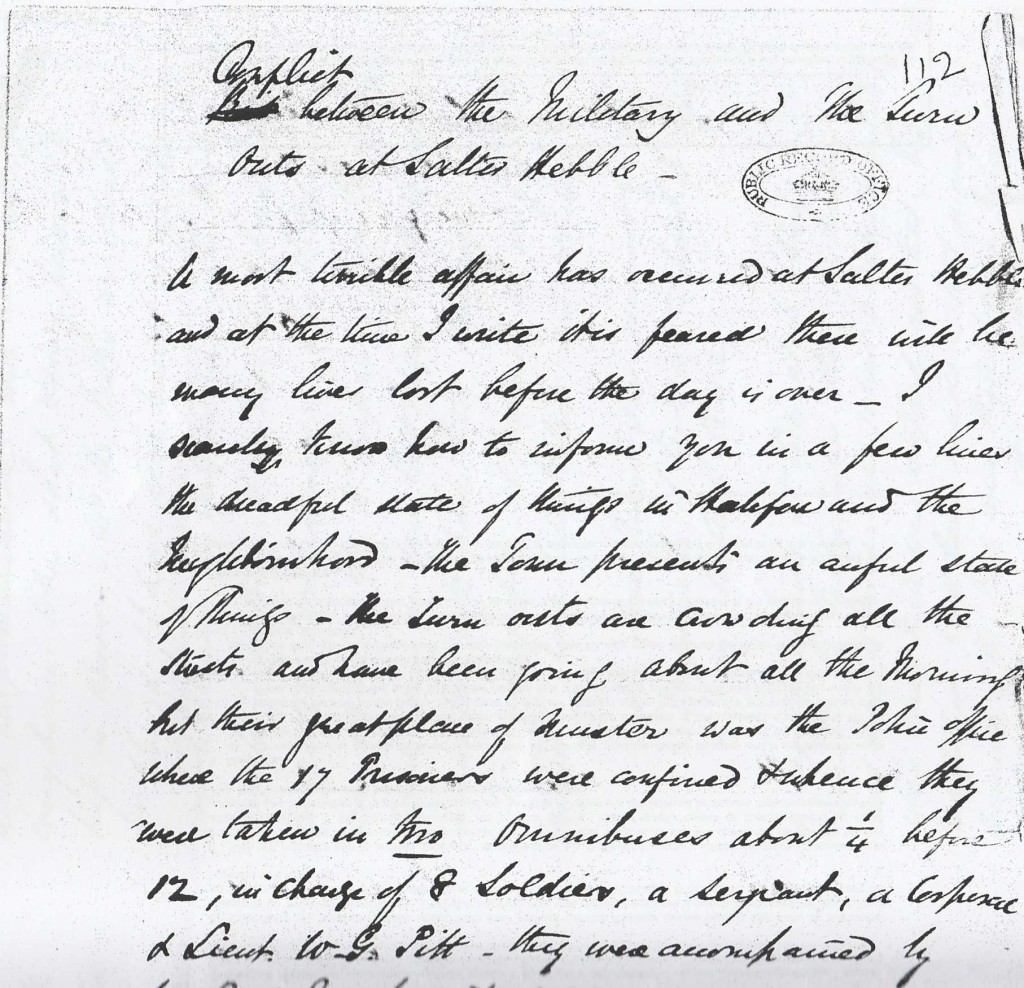 112
Conflict
between the Military and the Turn
Outs at Salter Hebble -
PUBLIC RECORD OFFICE
A most terrible affair has occurred at Salter Hebble
and at the time I write it is feared there will be
many lives lost before the day is over - I
scarcely know how to inform you in a few lines
the dreadful state of things in Halifax and the
Neighbourhood - the Town presents an awful state
of Things - the Turn outs are crowding all the
Streets and have been going about all the Morning
but their great place of Muster was the Police office
where the 17 Prisoners were confined & whence they
were taken in two Omnibuses about 1/4 before
12, in charge of 8 Soldiers, a Serjeant, a Corporal
& Lieut. W. G. Pitt - they were accompanied by